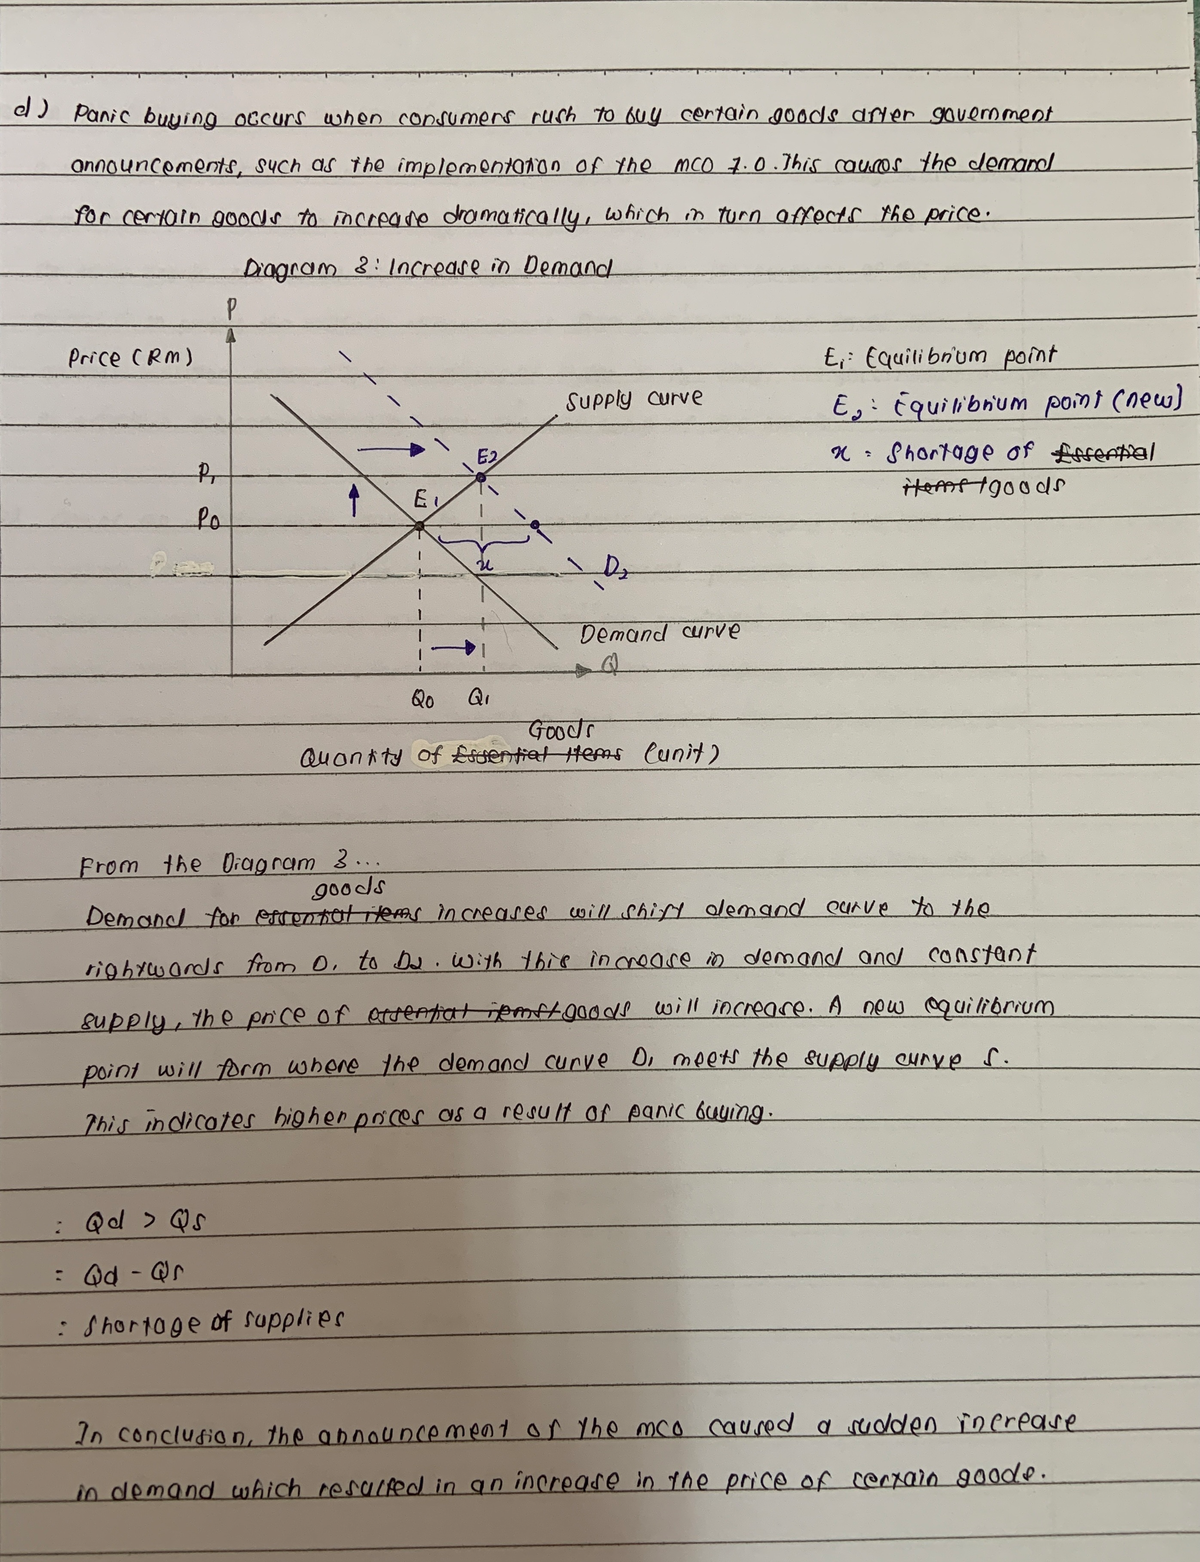 d) Panic buying occurs when consumers rush to buy certain goods after government
announcements, such as the implementation of the MCO 1.0. This causes the demand
for certain goods to increase dramatically, which in turn affects the price.
Diagram 3: Increase in Demand
P
Price (RM)
E1: Equilibrium point
Supply curve
E2: Equilibrium point (new)
E2
x = Shortage of Essential
P1
items / goods
E1
P0
x
D2
Demand curve
Q
Q0 Q1
Goods
Quantity of Essential Items (unit)
From the Diagram 3...
goods
Demand for essential items increases will shift demand curve to the
rightwards from D1 to D2. With this increase in demand and constant
supply, the price of essential items / goods will increase. A new equilibrium
point will form where the demand curve D1 meets the supply curve S.
This indicates higher prices as a result of panic buying.
: Qd > Qs
= Qd - Qs
: Shortage of supplies
In conclusion, the announcement of the MCO caused a sudden increase
in demand which resulted in an increase in the price of certain goods.